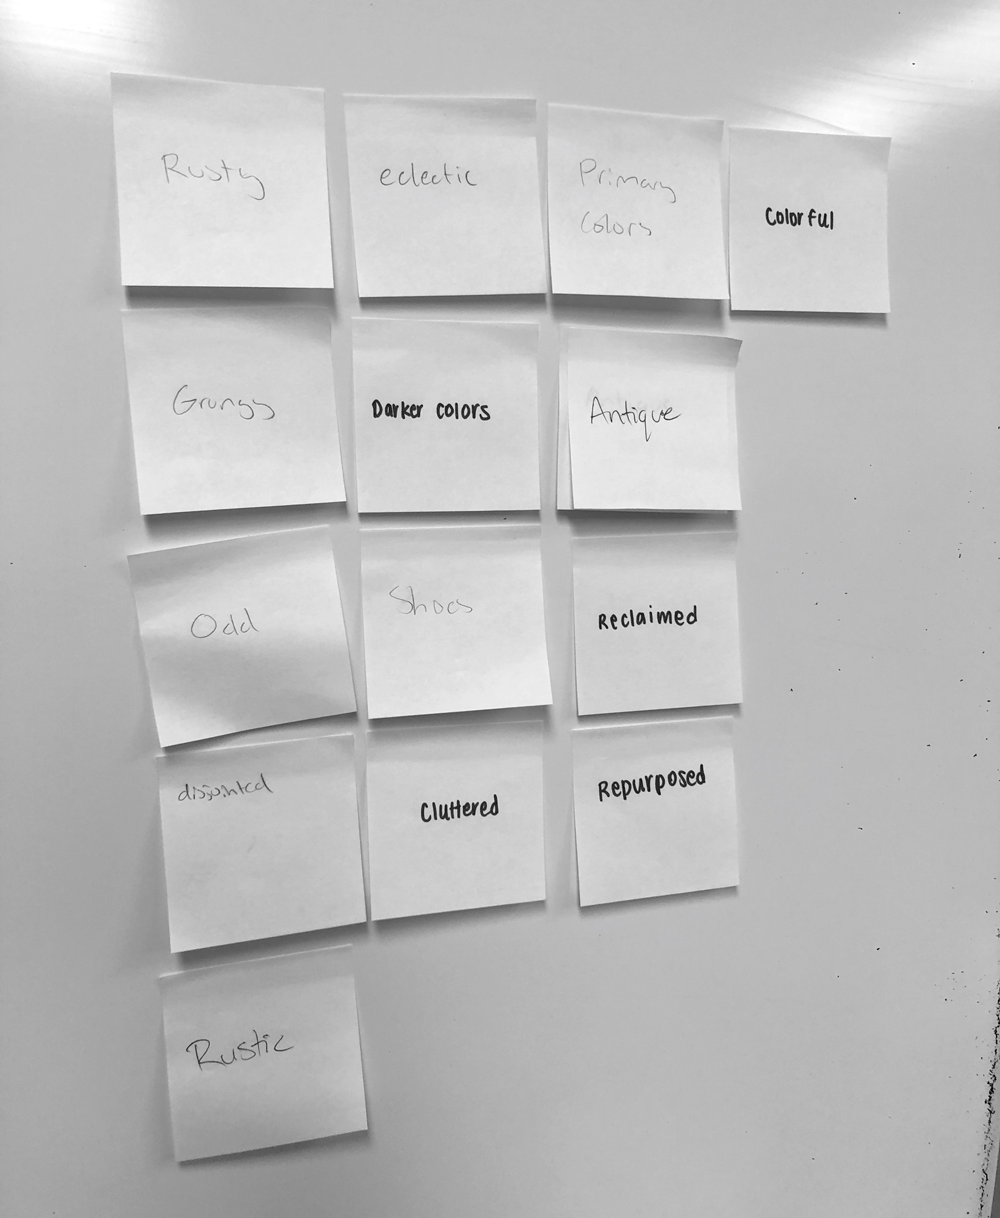 Rusty
eclectic
Primary
Colors
Colorful
Grungy
Darker colors
Antique
Odd
Shoes
Reclaimed
disjointed
Cluttered
Repurposed
Rustic